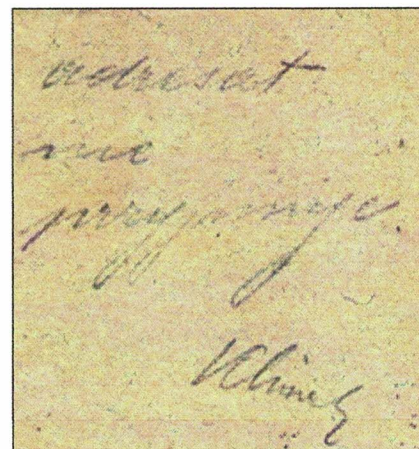 adresat
nie
przyjmuje.
Klimek